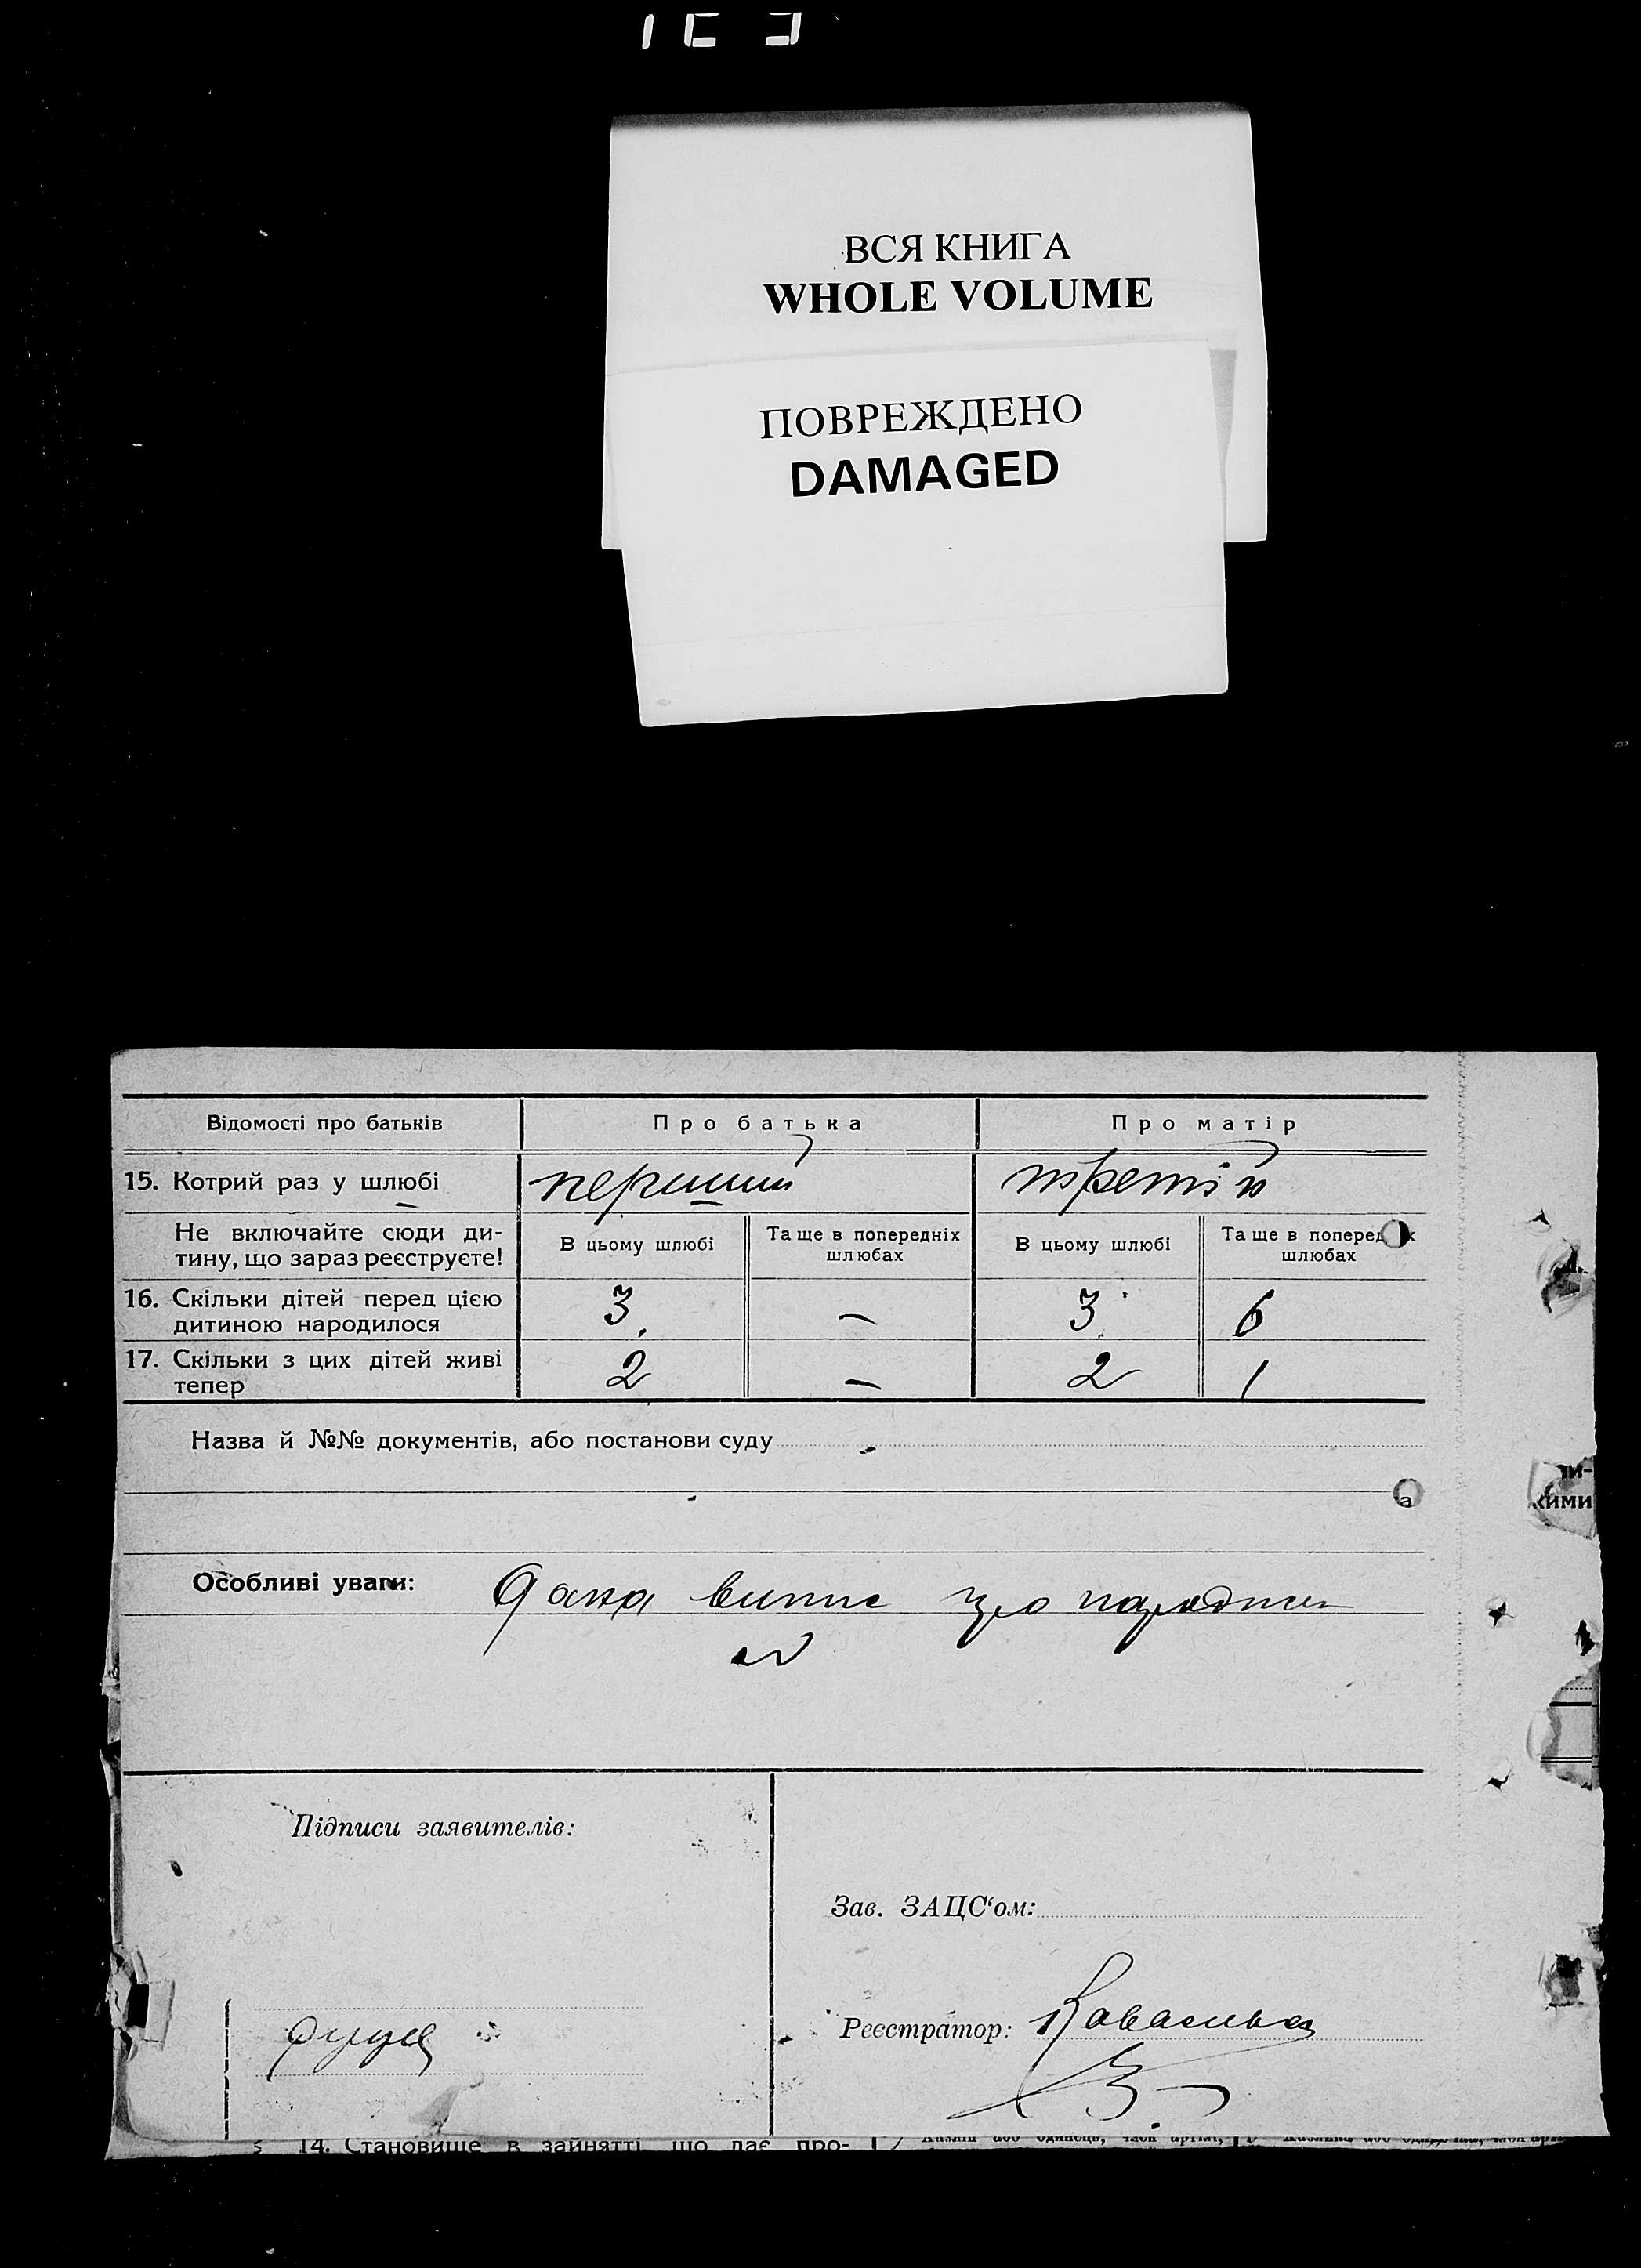 ВСЯ КНИГА
WHOLE VOLUME
ПОВРЕЖДЕНО
DAMAGED
Відомості про батьків Про батька Про матір
15. Котрий раз у шлюбі перший третій
Не включайте сюди ди-
тину, що зараз реєструєте!
В цьому шлюбі Та ще в попередніх
шлюбах
В цьому шлюбі Та ще в поперед х
шлюбах
16. Скільки дітей перед цією
дитиною народилося 3 — 3 6
17. Скільки з цих дітей живі
тепер 2 — 2 1
Назва й №№ документів, або постанови суду
а
ти-
кими
Особливі уваги: Дана випис про народжен
Підписи заявителів:
Зав. ЗАЦС‘ом:
Реєстратор:
14. Становище в зайнятті, що дає про-